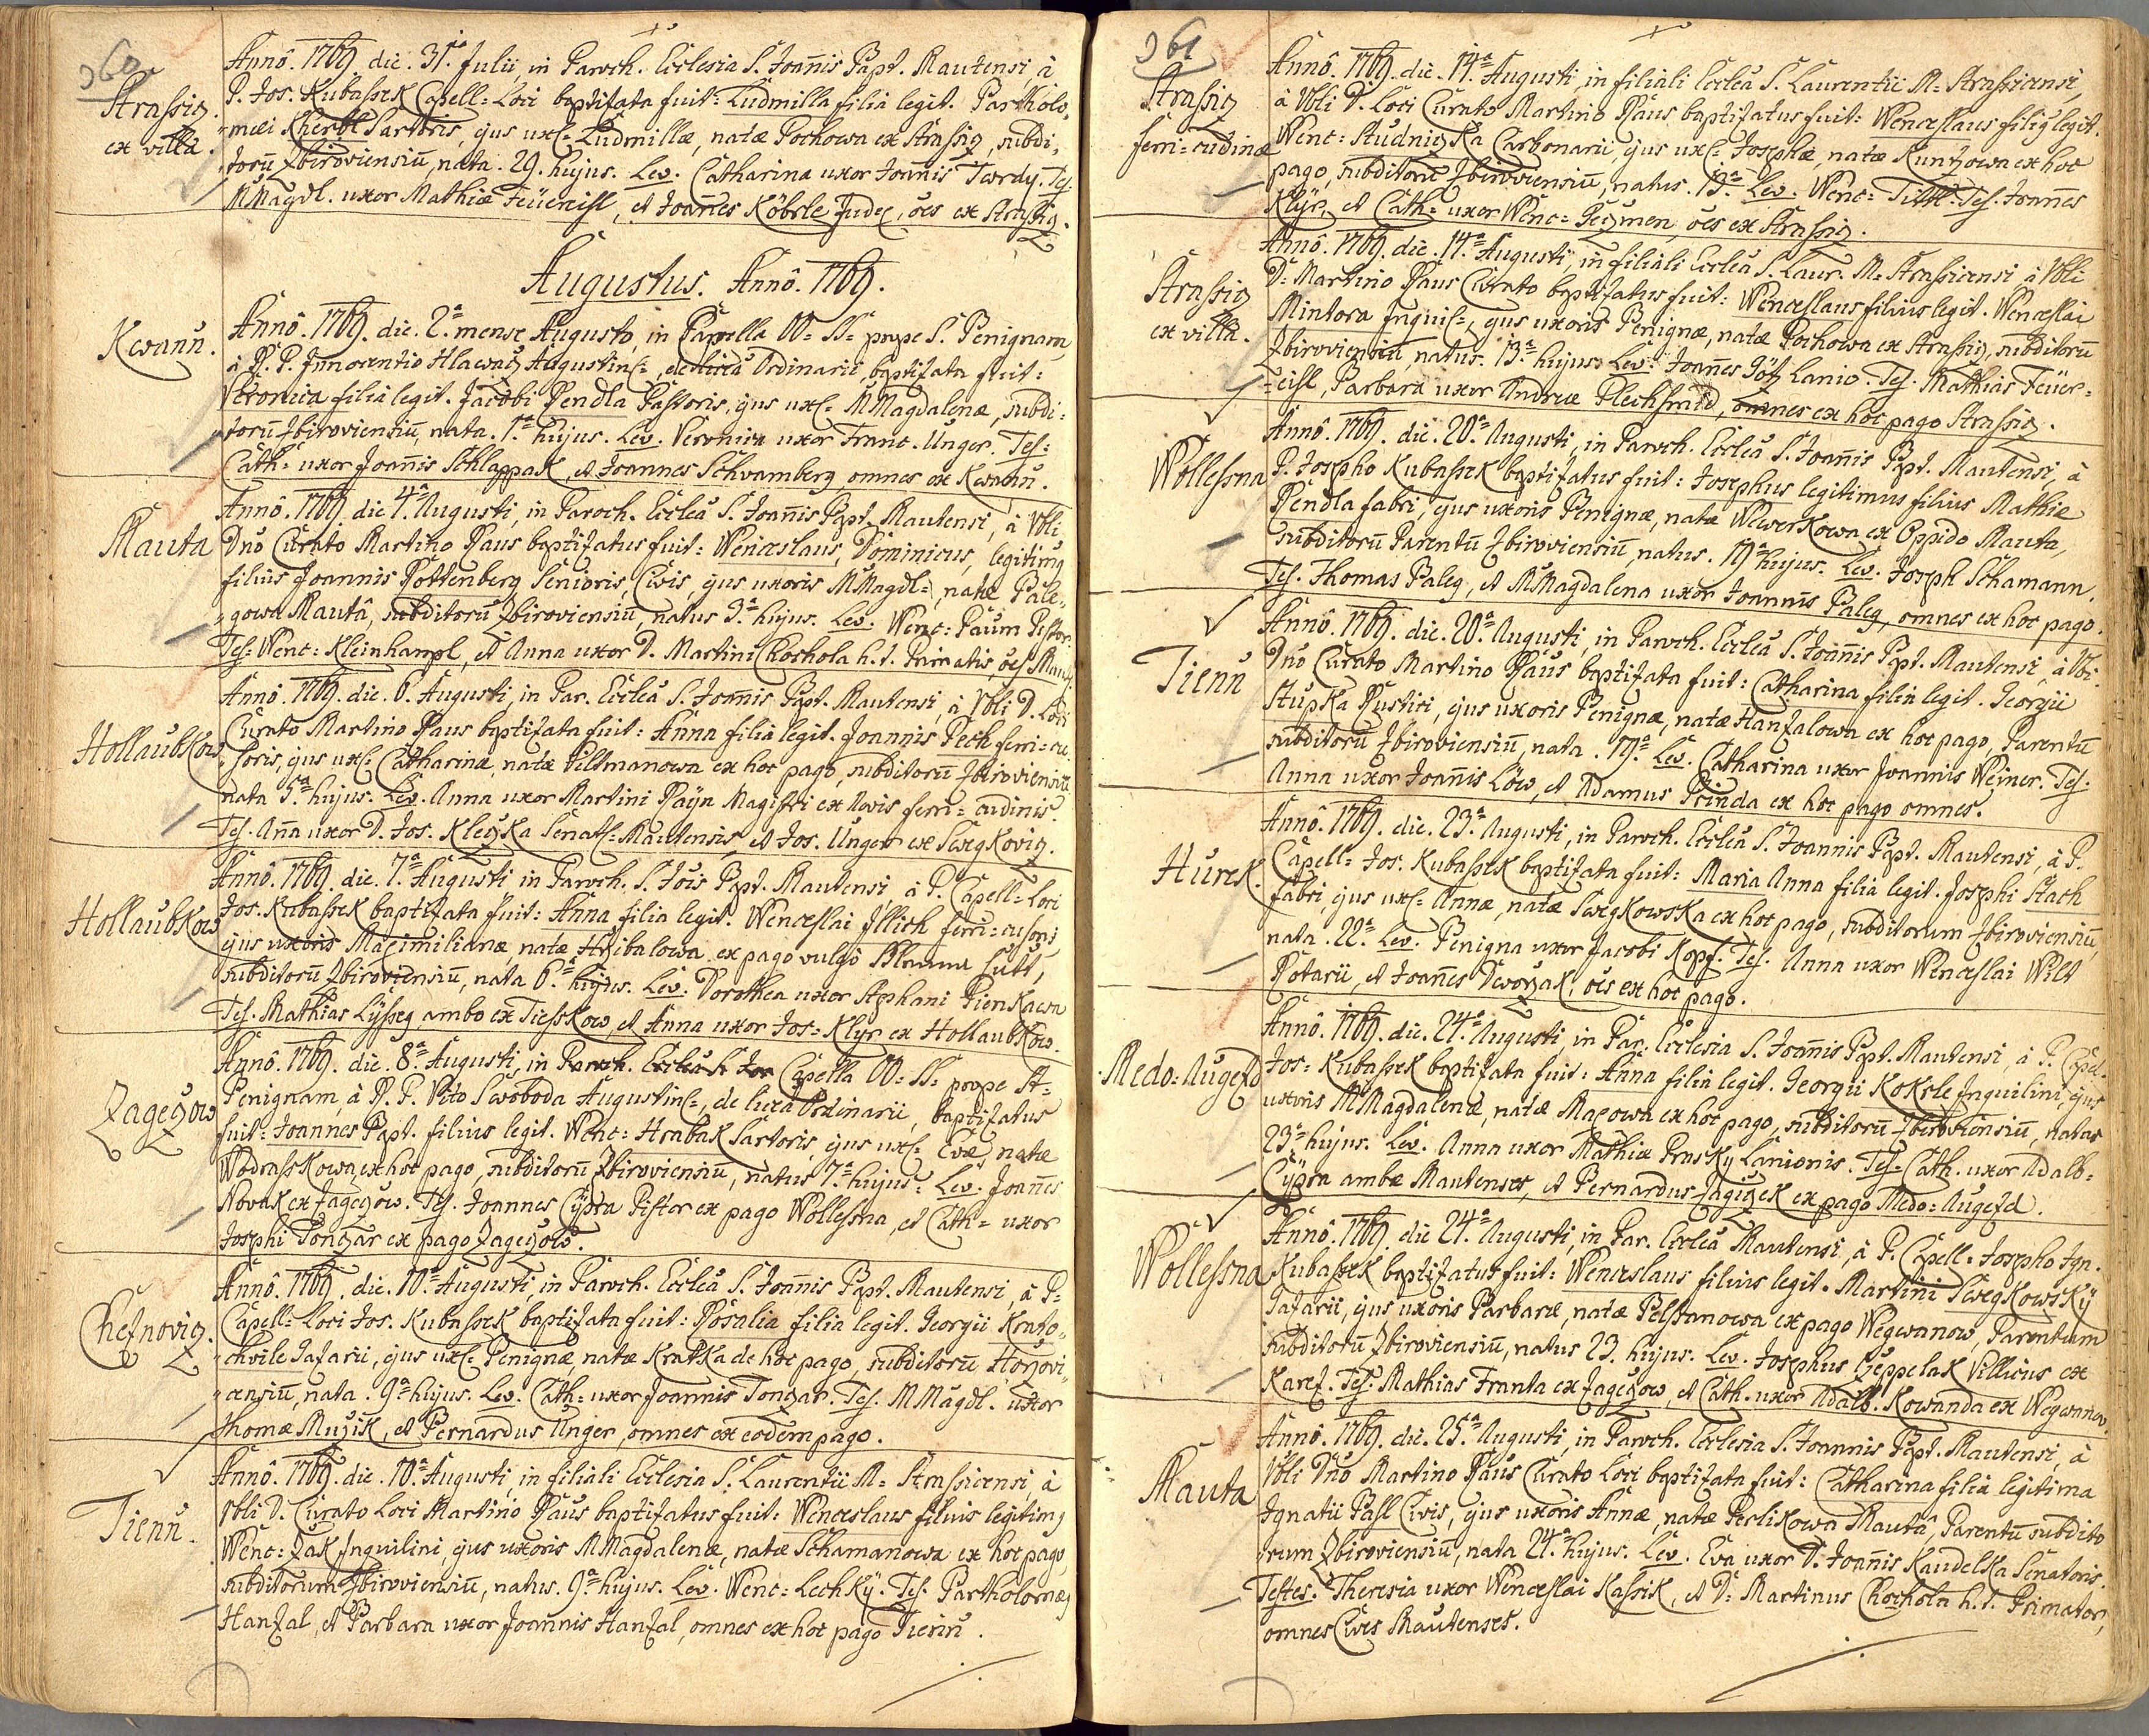 360
Strassiz
ex villa.
Annô. 1769. die. 31. Julii, in Paroch. Ecclesia S. Joañis Bapt. Mautensi à
P. Jos. Kubassek Capell= Loci baptizata fuit: Ludmilla filia legit. Bartholo„
„mæi Sartoris, ejus ux= Ludmillæ, natæ Pochowa ex Strassiz, subdi„
„torũ Zbiroviensiũ, nata. 29. hujus. Lev. Catharina uxor Joañis Twrdy. Tes.
MMagdl. uxor Mathiæ Feüereisl, et Joañes Köbrle Judex, oẽs ex Strassiz.
Augustus. Annô. 1769.
Kwanũ.
Annô. 1769. die. 2ª mense Augusto, in Capella OO= SS= prope S. Benignam
à R. P. Innocentio Hlawacz Augustin=, de licẽa Ordinarii, baptizata fuit:
Veronica filia legit. Jacobi Rendla Pastoris, ejus ux= MMagdalenæ, subdi:
„torũ Zbiroviensiũ, nata. 1ª hujus. Lev. Veronica uxor Franc. Unger. Tes:
Cath= uxor Joañis Schlappak, et Joannes Schvamberg omnes ex Kwanũ.
Mauta
Annô. 1769. die 4ª Augusti, in Paroch. Eccleã S. Joañis Bapt. Mautensi, à Vbli
Dnô Curato Martino Raus baptizatus fuit: Wenceslaus, Dominicus, legitimg
filius Joannis Rottenberg Senioris, Civis, ejus uxoris MMagdl=, natæ Pale„
„gowa Mautâ, subditorũ Zbiroviensiũ, natus 3ª hujus. Lev. Wenc: Paum Pistor.
Tes: Wenc: Kleinhampl, et Anna uxor D. Martini Chochola h. t. Primatis, oẽs Maut:
Hollaubkow
Annô. 1769. die. 6. Augusti, in Par. Eccleã S. Joañis Bapt. Mautensi, à Vbli D. Loci
Curato Martino Raus baptizata fuit: Anna filia legit. Joannis Pech ferri=cu„
„soris, ejus ux= Catharinæ, natæ Piltmanowa ex hoc pago, subditorũ Zbiroviensiũ
nata 5ª hujus. Lev. Anna uxor Martini Rayn Magistri ex Novis ferri= cudinis.
Tes. Aña uxor D. Jos. Kleczka Senat= Mautensis et Jos. Unger ex Swegkoviz.
Hollaubkow
Annô. 1769. die. 7ª Augusti, in Paroch. S. Jois Bapt. Mautensi, à P. Capell= Loci
Jos. Kubassek baptizata fuit: Anna filia legit. Wenceslai Illich ferri=cusoris
ejus uxoris Maximilianæ, natæ Hrzibalowa ex pago vulgô Blauna hütt,
subditorũ Zbiroviensiũ, nata 6ª hujus. Lev. Dorothea uxor Stephani Pienkawa
Tes. Mathias Lysseg ambo ex Tiesskow, et Anna uxor Jos= Klyr ex Hollaubkow.
Zageczow
Annô. 1769. die. 8ª Augusti, in Paroch. Eccleã S. Joa Capella OO= SS= prope St=
Benignam, à R. P. Vito Swoboda Augustin=, de licẽa Ordinarii, baptizatus
fuit: Joannes Bapt. filius legit. Wenc: Hrabak Sartoris, ejus ux= Evæ, natæ
Wodrasskowa ex hoc pago, subditorũ Zbiroviensiũ, natus 7ª hujus= Lev. Joañes
Novak ex Zageczow. Tes. Joannes Cÿdra Pistor ex pago Wollessna, et Cath= uxor
Josephi Tonczar ex pago Zageczow.
Cheznoviz.
Annô. 1769. die. 10ª Augusti, in Paroch. Eccleã S. Joañis Bapt. Mautensi, à P=
Capell= Loci Jos. Kubassek baptizata fuit: Rosalia filia legit. Georgii Krato„
„chvile Casarii, ejus ux= Benignæ natæ Kratka de hoc pago, subditorũ Horzovi„
„censiũ, nata. 9ª hujus. Lev. Cath= uxor Joannis Tonczar. Tes. MMagdl. uxor
Thomæ Muzik, et Bernardus Unger, omnes ex eodem pago.
Tienũ.
Annô. 1769. die. 10ª Augusti, in filiali Ecclesia S. Laurentii M= Strassicensi, à
Vbli D. Curato Loci Martino Raus baptizatus fuit: Wenceslaus filius legitimg
Wenc: Zak Inquilini, ejus uxoris MMagdalenæ, natæ Schamanowa ex hoc pago,
subditorum Zbiroviensiũ, natus. 9ª hujus. Lev. Wenc: Lechkÿ. Tes. Bartholomæg
Hanzal, et Barbara uxor Joannis Hanzal, omnes ex hoc pago Tienũ.
361
Strassiz
ferri=cudinæ
Annô. 1769. die. 14ª Augusti, in filiali Eccleã S. Laurentii M= Strassicensi,
à Vbli D. Loci Curato Martino Raus baptizatus fuit: Wenceslaus filig legit.
Wenc: Studniczka Carbonarii, ejus ux= Josephæ, natæ Kuntzowa ex hoc
pago, subditorũ Zbiroviensiũ, natus. 13ª Lev. Wenc: Tittl. Tes. Joannes
Klÿr, et Cath= uxor Wenc= Geczmen, oẽs ex Strassiz.
Strassiz
ex villa.
Annô. 1769. die. 14ª Augusti, in filiali Eccleã S. Laur. M. Strassicensi à Vbli
D: Martino Raus Curato baptizatus fuit: Wenceslaus filius legit. Wenceslai
Mintora Inquil=, ejus uxoris Benignæ, natæ Pochowa ex Strassiz, subditorũ
Zbiroviensiũ, natus. 13ª hujus. Lev. Joañes Götz Lanio. Tes. Mathias Feüer=
=eisl, Barbara uxor Andreæ Plechschmid, omnes ex hoc pago Strassiz.
Wollessna
Annô. 1769. die. 20ª Augusti, in Paroch. Eccleã S. Joañis Bapt. Mautensi, à
P. Josepho Kubassek baptizatus fuit: Josephus legitimus filius Mathiæ
Rendla fabri, ejus uxoris Benignæ, natæ Wewerkowa ex Oppido Mauta,
subditorũ Parentũ Zbiroviensiũ, natus. 19ª hujus. Lev. Joseph Schamann.
Tes. Thomas Paleg, et MMagdalena uxor Joannis Paleg, omnes ex hoc pago.
Tienũ
Annô. 1769. die. 20ª Augusti, in Paroch. Eccleã S. Joañis Bapt. Mautensi, à Vbli.
Dnô Curato Martino Raus baptizata fuit: Catharina filia legit. Georgii
Stupka Rustici, ejus uxoris Benignæ, natæ Hanzalowa ex hoc pago, Parentũ
subditorũ Zbiroviensiũ, nata. 19ª. Lev. Catharina uxor Joannis Weiner. Tes:
Anna uxor Joañis Löw, et Adamus Prinda ex hoc pago omnes.
Hurek.
Annô. 1769. die. 23ª Augusti, in Paroch. Eccleã S. Joannis Bapt. Mautensi, à P.
Capell= Jos. Kubassek baptizata fuit: Maria Anna filia legit. Josephi Stach
fabri, ejus ux= Annæ, natæ Swegkowska ex hoc pago, subditorum Zbiroviensiũ,
nata. 22ª. Lev. Benigna uxor Jacobi Kopf. Tes. Anna uxor Wenceslai Wild
Rotarii, et Joañes Dworzak, oẽs ex hoc pago.
Medo=Augezd
Annô. 1769. die. 24ª Augusti, in Par. Ecclesia S. Joañis Bapt. Mautensi, à P. Capel.
Jos= Kubassek baptizata fuit: Anna filia legit. Georgii Kokrle Inquilini, ejus
uxoris MMagdalenæ, natæ Maxowa ex hoc pago, subditorũ Zbiroviensiũ, natas
23ª hujus. Lev. Anna uxor Mathiæ Prusky Lanionis. Tes. Cath. uxor Adalb=
Cÿdra ambæ Mautenses, et Bernardus Zagiczek ex pago Medo=Augezd.
Wollessna
Annô. 1769. die 24ª Augusti, in Par. Eccleã Mautensi, à P. Capell= Josepho Ign.
Kubassek baptizatus fuit: Wenceslaus filius legit. Martini Swegkowskÿ
Casarii, ejus uxoris Barbaræ, natæ Pelssanowa ex pago Wegwanow, Parentum
subditorũ Zbiroviensiũ, natus 23. hujus. Lev. Josephus Czeppelak Villicus ex
Karez. Tes. Mathias Franta ex Zageczow, et Cath. uxor Adalb. Kowanda ex Wegwanow.
Mauta
Annô. 1769. die. 25ª Augusti, in Paroch. Ecclesia S. Joannis Bapt. Mautensi, à
Vbli Dnô Martino Raus Curato Loci baptizata fuit: Catharina filia legitima
Ignatii Pasl Civis, ejus uxoris Annæ, natæ Perlikowa Mautâ, Parentũ subdito
„rum Zbiroviensiũ, nata 24ª hujus. Lev. Eva uxor D. Joañis Kaudelka Senatoris.
Testes. Theresia uxor Wenceslai Kassik, et D: Martinus Chochola h. t. Primator,
omnes Cives Mautenses.